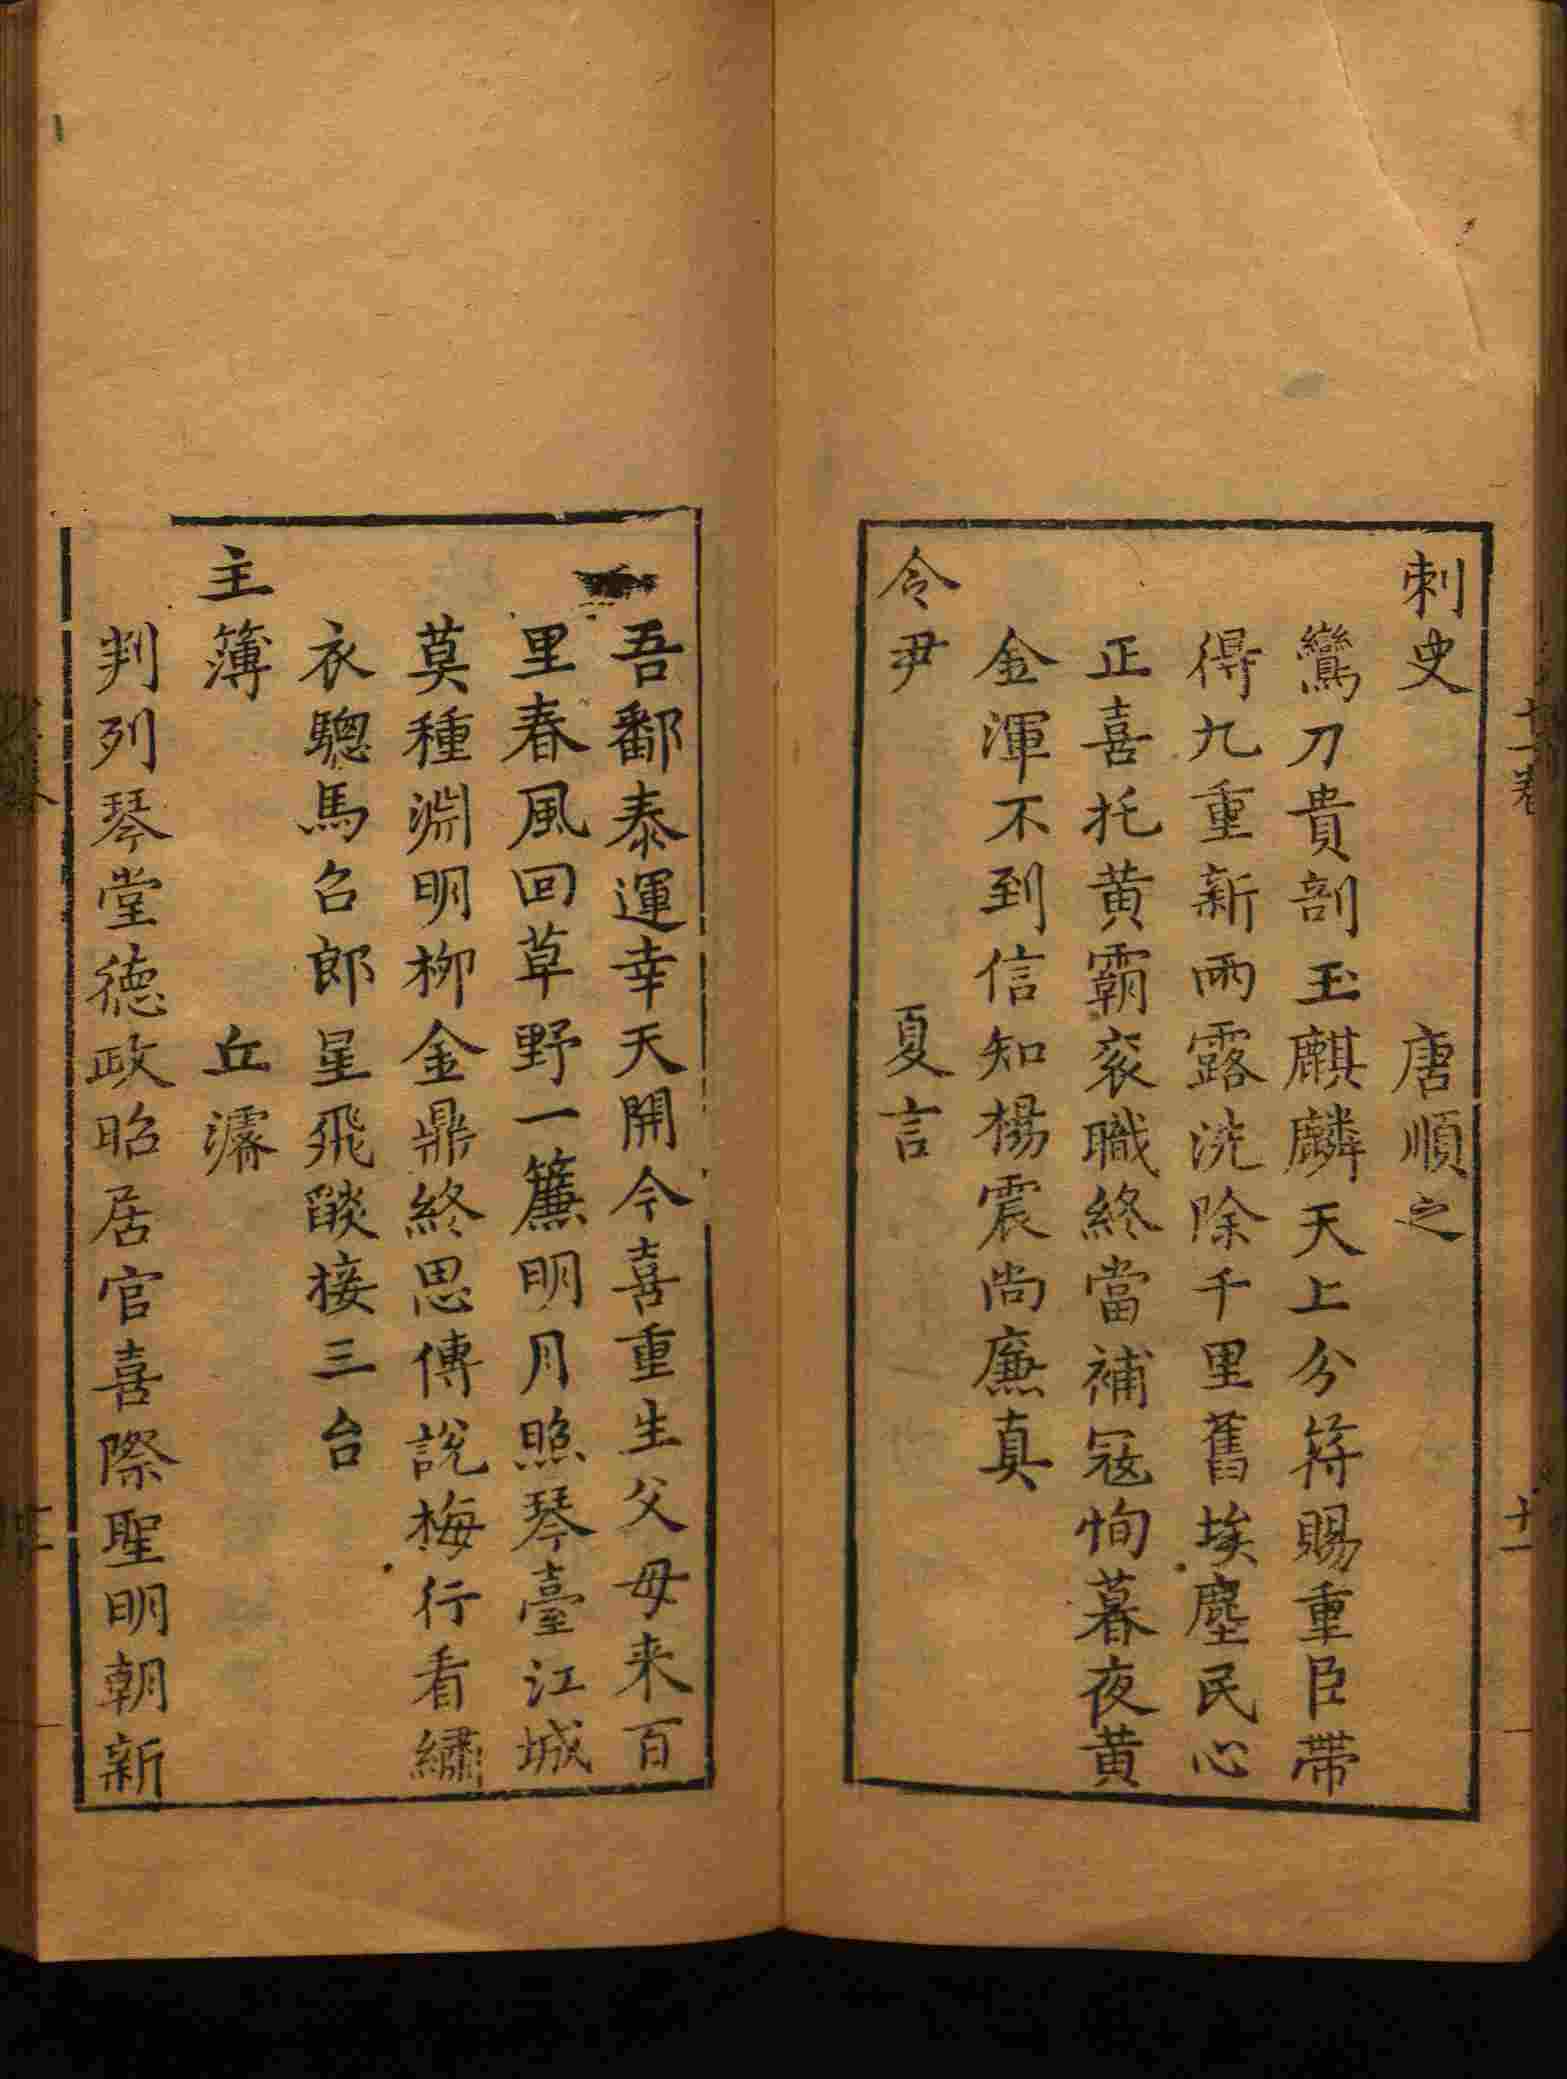 刺史　唐順之
鸞刀貴剖玉麒麟天上分符賜重臣帶
得九重新雨露洗除千里舊埃塵民心
正喜托黃霸衮職終當補冦恂暮夜黃
金渾不到信知楊震尚廉真
令尹　夏言
吾鄱泰運幸天開今喜重生父母来百
里春風回草野一簾明月照琴臺江城
莫種淵明柳金鼎終思傅說梅行看繡
衣驄馬召郎星飛燄接三台
主簿　丘濬
判列琴堂德政昭居官喜際聖明朝新
十一